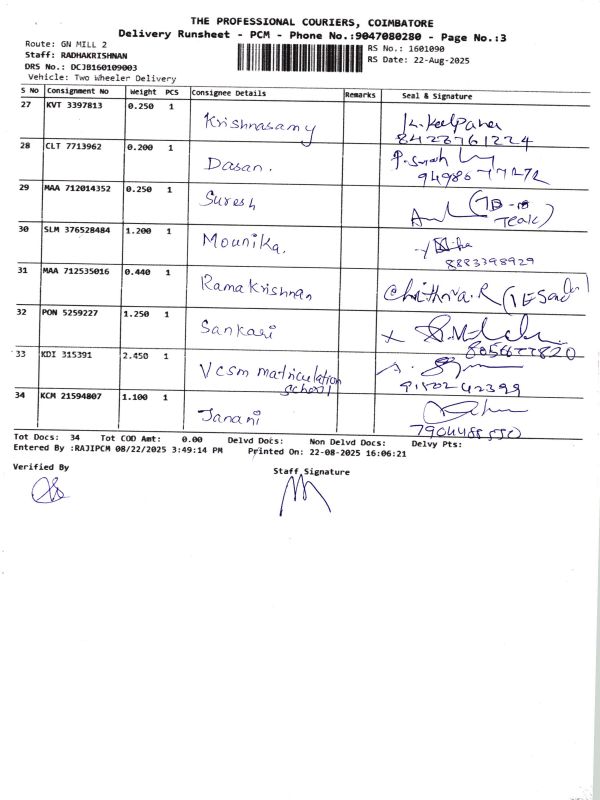 THE PROFESSIONAL COURIERS, COIMBATORE
Delivery Runsheet - PCM - Phone No.:9047080280 - Page No.:3
Route: GN MILL 2
RS No.: 1601090
Staff: RADHAKRISHNAN
RS Date: 22-Aug-2025
DRS No.: DCJB160109003
Vehicle: Two Wheeler Delivery
S No Consignment No Weight PCS Consignee Details Remarks Seal & Signature
27 KVT 3397813 0.250 1 Krishnasamy
28 CLT 7713962 0.200 1 Dasan.
29 MAA 712014352 0.250 1 Suresh
30 SLM 376528484 1.200 1 Mounika.
8883398929
31 MAA 712535016 0.440 1 Ramakrishnan Chithra.R
32 PON 5259227 1.250 1 Sankari
33 KDI 315391 2.450 1 Vcsm matriculation
School
34 KCM 21594807 1.100 1 Janani
Tot Docs: 34 Tot COD Amt: 0.00 Delvd Docs: Non Delvd Docs: Delvy Pts:
Entered By :RAJIPCM 08/22/2025 3:49:14 PM Printed On: 22-08-2025 16:06:21
Verified By
Staff Signature